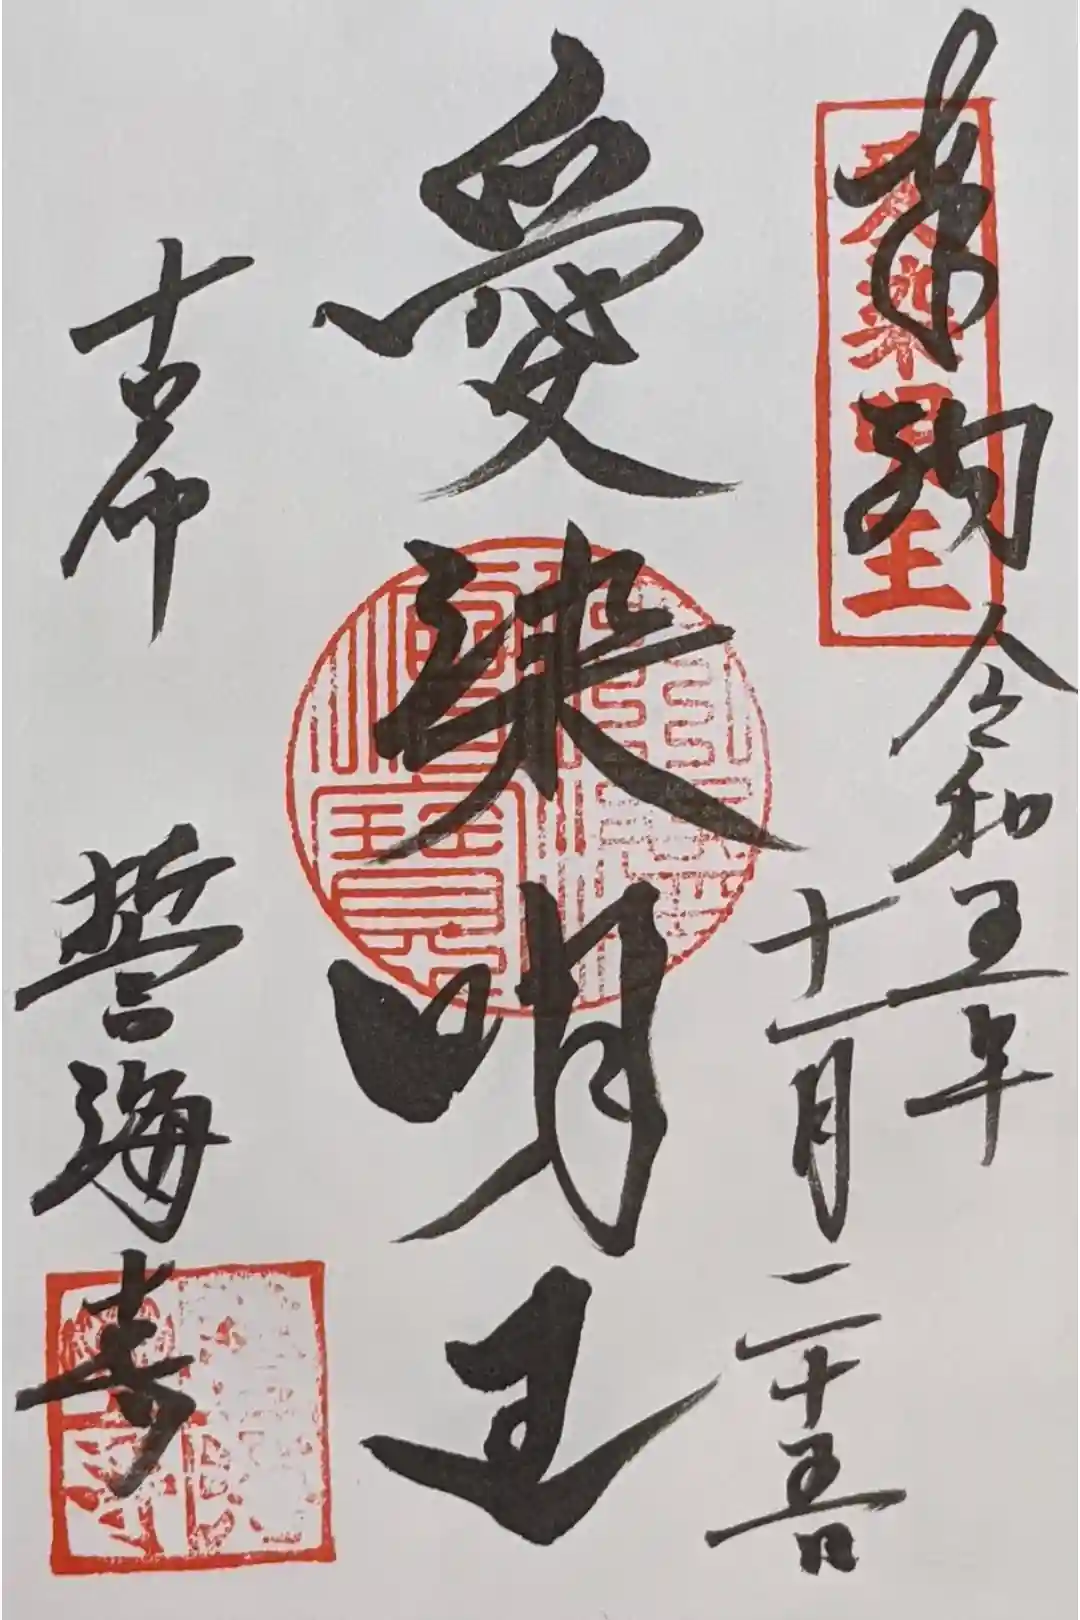 愛染明王
奉
令和五年
十一月二十五日
愛染明王
古布
誓海寺